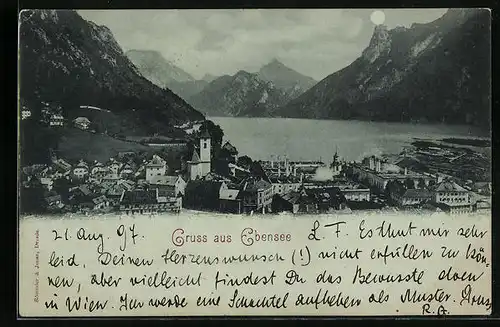 21. Aug. 97.
Gruss aus Ebensee
L. F. Es thut mir sehr
leid, Deinen Herzenswunsch (!) nicht erfüllen zu kön-
nen, aber vielleicht findest Du das Bewusste oben
in Wien. Ich werde eine Schachtel aufheben als Muster.
R. G.